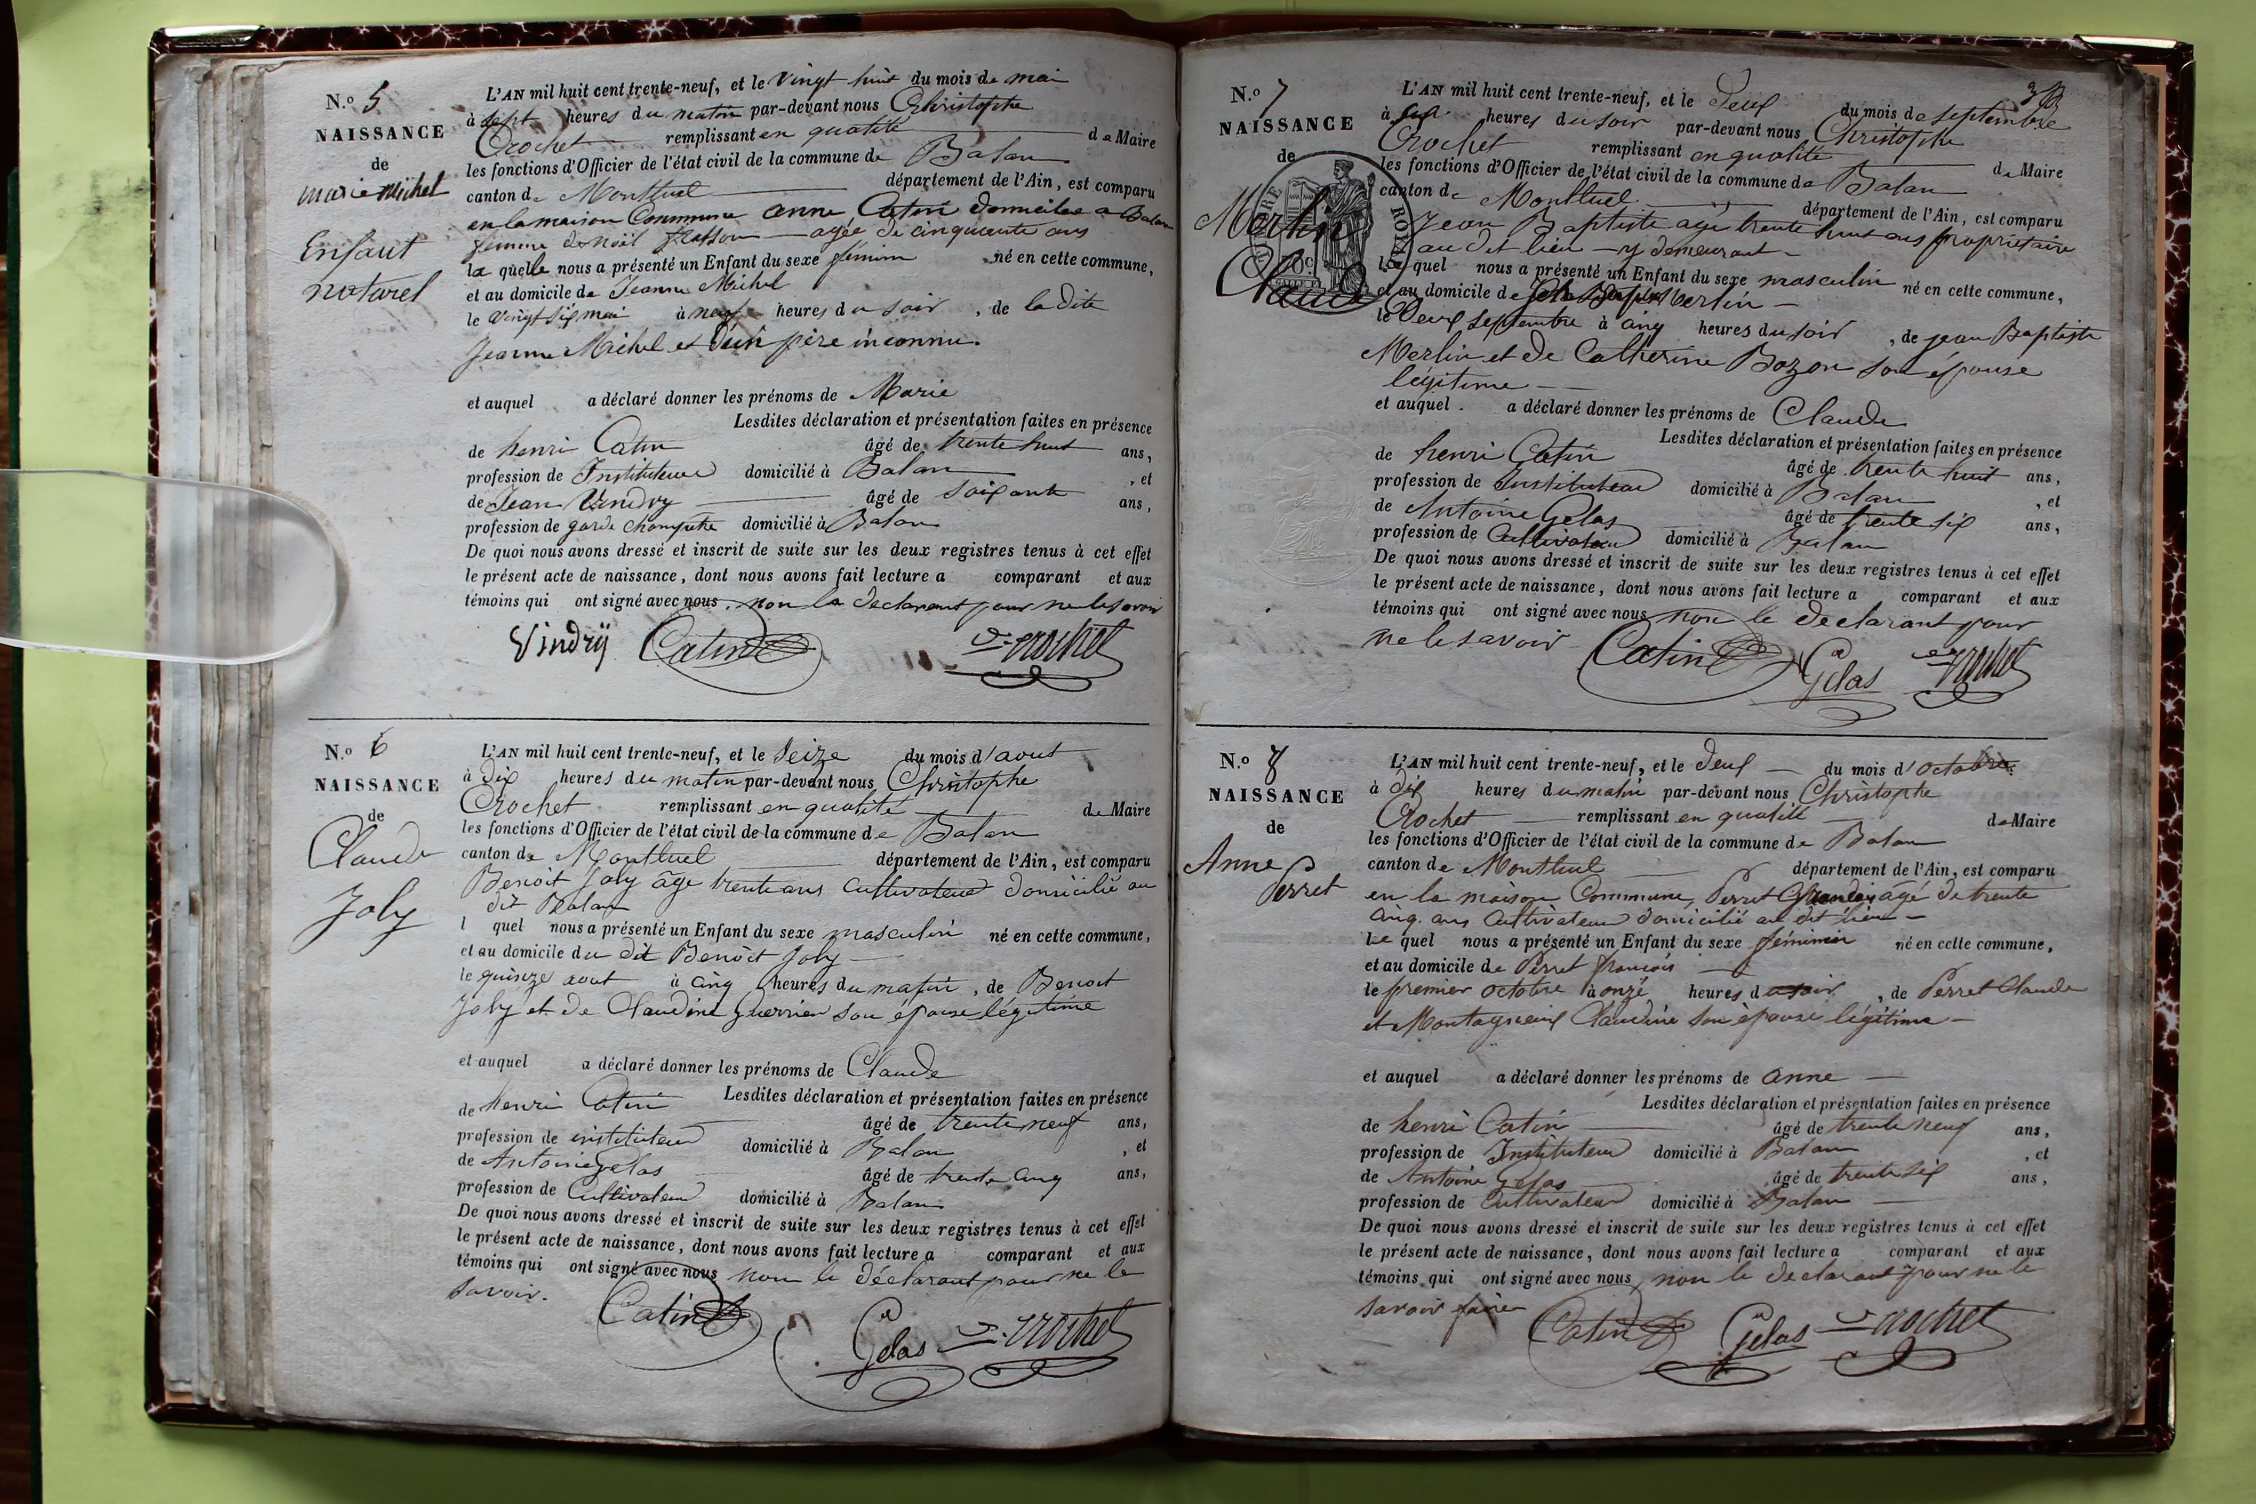 N.º 5
NAISSANCE
de
marie Michel
Enfant
naturel
L'AN mil huit cent trente-neuf, et le vingt huit du mois de mai
à sept heures du matin par-devant nous Christophe
Crochet remplissant en qualité de Maire
les fonctions d'Officier de l'état civil de la commune de Balan
canton de Montluel département de l'Ain, est comparu
en la maison Commune anne Catin domiciliée a Balan
femme de noël âgée de cinquante ans
la quelle nous a présenté un Enfant du sexe féminin né en cette commune,
et au domicile de Jeanne Michel
le vingt six mai à neuf heures du soir, de la dite
Jeanne Michel et d'un père inconnu.
et auquel a déclaré donner les prénoms de Marie
Lesdites déclaration et présentation faites en présence
de henri Catin âgé de trente huit ans,
profession de Instituteur domicilié à Balan, et
de Jean Vindry âgé de soixante ans,
profession de garde champetre domicilié à Balan
De quoi nous avons dressé et inscrit de suite sur les deux registres tenus à cet effet
le présent acte de naissance, dont nous avons fait lecture a comparant et aux
témoins qui ont signé avec nous. non la declarant pour ne le savoir
Vindrÿ Catin Crochet
N.º 6
NAISSANCE
de
Claude
Joly
L'AN mil huit cent trente-neuf, et le Seize du mois d'aout
à dix heures du matin par-devant nous Christophe
Crochet remplissant en qualité de Maire
les fonctions d'Officier de l'état civil de la commune de Balan
canton de Montluel département de l'Ain, est comparu
Benoit Joly âgé trente ans Cultivateur domicilié au
dit Balan
l quel nous a présenté un Enfant du sexe masculin né en cette commune,
et au domicile du dit Benoit Joly
le quinze aout à cinq heures du matin, de Benoit
Joly et de Claudine Guerrier son épouse légitime
et auquel a déclaré donner les prénoms de Claude
Lesdites déclaration et présentation faites en présence
de henri Catin âgé de trente neuf ans,
profession de instituteur domicilié à Balan, et
de Antoine Gelas âgé de trente cinq ans,
profession de Cultivateur domicilié à Balan
De quoi nous avons dressé et inscrit de suite sur les deux registres tenus à cet effet
le présent acte de naissance, dont nous avons fait lecture a comparant et aux
témoins qui ont signé avec nous non le déclarant pour ne le
savoir.
Catin Gelas Crochet
N.º 7
NAISSANCE
de
Merlin
Claude
L'AN mil huit cent trente-neuf, et le Deux du mois de septembre
à six heures du soir par-devant nous Christophe
Crochet remplissant en qualité de Maire
les fonctions d'Officier de l'état civil de la commune de Balan
canton de Montluel département de l'Ain, est comparu
Jean Baptiste âgé trente huit ans propriétaire
au dit lieu y demeurant
Le quel nous a présenté un Enfant du sexe masculin né en cette commune,
et au domicile de Merlin
le Deux septembre à cinq heures du soir, de jean Baptiste
Merlin et de Catherine Bozon son épouse
légitime
et auquel. a déclaré donner les prénoms de Claude
Lesdites déclaration et présentation faites en présence
de henri Catin âgé de trente huit ans,
profession de Instituteur domicilié à Balan, et
de Antoine Gelas âgé de trente six ans,
profession de Cultivateur domicilié à Balan
De quoi nous avons dressé et inscrit de suite sur les deux registres tenus à cet effet
le présent acte de naissance, dont nous avons fait lecture a comparant et aux
témoins qui ont signé avec nous non le declarant pour
ne le savoir
Catin Gelas Crochet
N.º 8
NAISSANCE
de
Anne
Perret
L'AN mil huit cent trente-neuf, et le Deux du mois d'octobre
à dix heures du matin par-devant nous Christophe
Crochet remplissant en qualité de Maire
les fonctions d'Officier de l'état civil de la commune de Balan
canton de Montluel département de l'Ain, est comparu
en la maison Commune, Perret âgé de trente
cinq ans Cultivateur domicilié au dit lieu
Le quel nous a présenté un Enfant du sexe féminin né en cette commune,
et au domicile de Perret françois
le premier octobre à onze heures du soir, de Perret Claude
et Claudine son épouse légitime
et auquel a déclaré donner les prénoms de anne
Lesdites déclaration et présentation faites en présence
de henri Catin âgé de trente neuf ans,
profession de Instituteur domicilié à Balan, et
de Antoine Gelas âgé de trente six ans,
profession de Cultivateur domicilié à Balan
De quoi nous avons dressé et inscrit de suite sur les deux registres tenus à cet effet
le présent acte de naissance, dont nous avons fait lecture a comparant et aux
témoins qui ont signé avec nous, non le declarant pour ne le
savoir faire
Catin Gelas Crochet